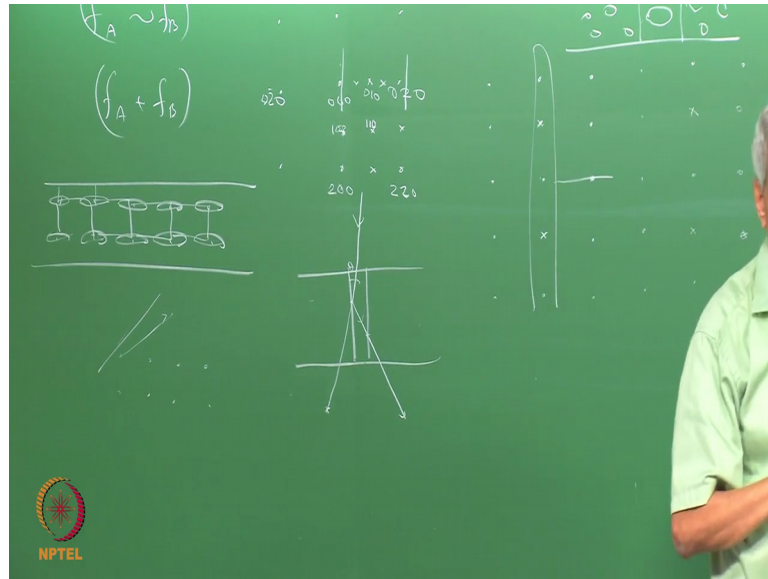 (f_A ~ f_B)
(f_A + f_B)
0 2̄ 0 000 010 020
100 110
200 220
NPTEL